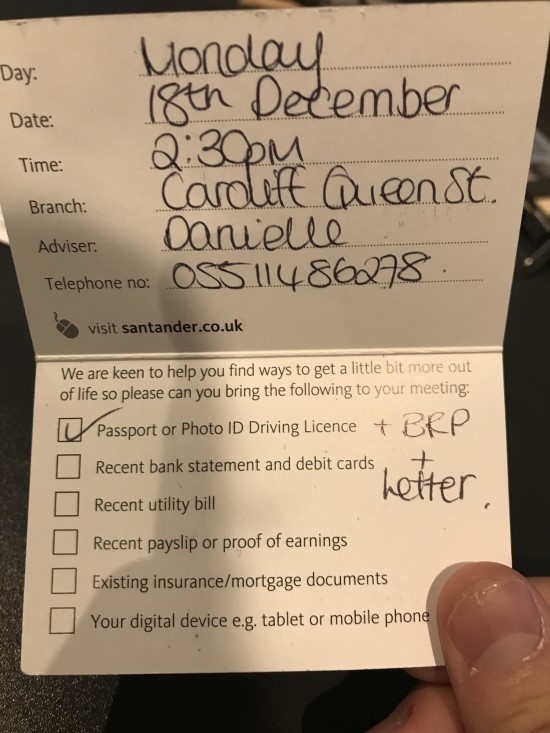 Day: Monday
Date: 18th December
Time: 2:30pm
Branch: Cardiff Queen St.
Adviser: Danielle
Telephone no: 05511486278
visit santander.co.uk
We are keen to help you find ways to get a little bit more out
of life so please can you bring the following to your meeting:
Passport or Photo ID Driving Licence + BRP
Recent bank statement and debit cards +
Letter.
Recent utility bill
Recent payslip or proof of earnings
Existing insurance/mortgage documents
Your digital device e.g. tablet or mobile phone